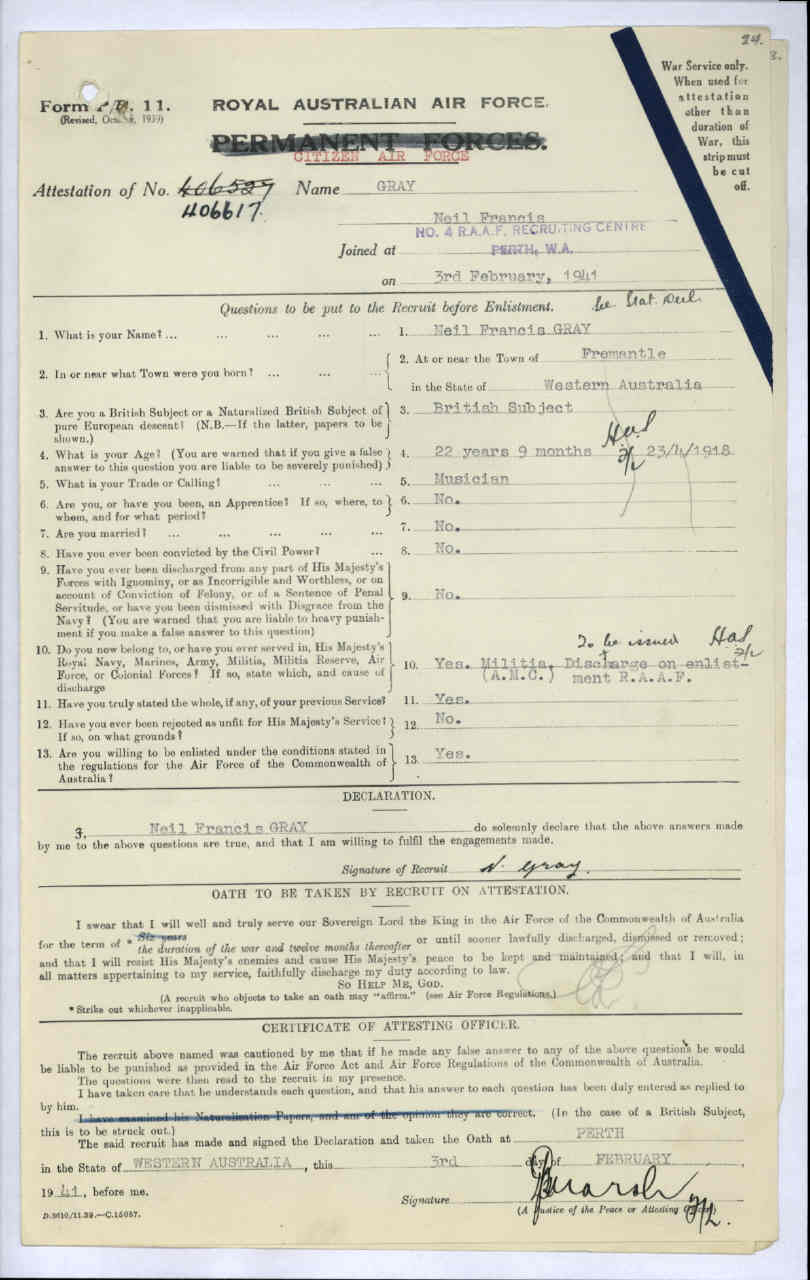 24.
War Service only.
When used for
attestation
other than
duration of
War, this
strip must
be cut
off.
Form P/P. 11.
(Revised, October, 1939)
ROYAL AUSTRALIAN AIR FORCE.
PERMANENT FORCES.
CITIZEN AIR FORCE
Attestation of No. 406529 Name GRAY
406617.
Neil Francis
NO. 4 R.A.A.F. RECRUITING CENTRE
Joined at PERTH, W.A.
on 3rd February, 1941
Questions to be put to the Recruit before Enlistment. See Stat. Decl.
1. What is your Name? ... ... ... ... ... 1. Neil Francis GRAY
2. In or near what Town were you born? ... ... ... 2. At or near the Town of Fremantle
in the State of Western Australia
3. Are you a British Subject or a Naturalized British Subject of 3. British Subject
pure European descent? (N.B.—If the latter, papers to be
shown.)
4. What is your Age? (You are warned that if you give a false 4. 22 years 9 months 3/2 23/4/1918
answer to this question you are liable to be severely punished)
5. What is your Trade or Calling? ... ... ... 5. Musician
6. Are you, or have you been, an Apprentice? If so, where, to 6. No.
whom, and for what period?
7. Are you married? ... ... ... ... ... 7. No.
8. Have you ever been convicted by the Civil Power? ... 8. No.
9. Have you ever been discharged from any part of His Majesty's
Forces with Ignominy, or as Incorrigible and Worthless, or on
account of Conviction of Felony, or of a Sentence of Penal 9. No.
Servitude, or have you been dismissed with Disgrace from the
Navy? (You are warned that you are liable to heavy punish-
ment if you make a false answer to this question)
To be issued 3/2
10. Do you now belong to, or have you ever served in, His Majesty's
Royal Navy, Marines, Army, Militia, Militia Reserve, Air 10. Yes. Militia, Discharge on enlist-
Force, or Colonial Forces? If so, state which, and cause of (A.M.C.) ment R.A.A.F.
discharge
11. Have you truly stated the whole, if any, of your previous Service? 11. Yes.
12. Have you ever been rejected as unfit for His Majesty's Service? 12. No.
If so, on what grounds?
13. Are you willing to be enlisted under the conditions stated in 13. Yes.
the regulations for the Air Force of the Commonwealth of
Australia?
DECLARATION.
I, Neil Francis GRAY do solemnly declare that the above answers made
by me to the above questions are true, and that I am willing to fulfil the engagements made.
Signature of Recruit N. Gray.
OATH TO BE TAKEN BY RECRUIT ON ATTESTATION.
I swear that I will well and truly serve our Sovereign Lord the King in the Air Force of the Commonwealth of Australia
for the term of * Six years
the duration of the war and twelve months thereafter or until sooner lawfully discharged, dismissed or removed;
and that I will resist His Majesty's enemies and cause His Majesty's peace to be kept and maintained; and that I will, in
all matters appertaining to my service, faithfully discharge my duty according to law.
SO HELP ME, GOD.
(A recruit who objects to take an oath may "affirm." (see Air Force Regulations.)
* Strike out whichever inapplicable.
CERTIFICATE OF ATTESTING OFFICER.
The recruit above named was cautioned by me that if he made any false answer to any of the above questions he would
be liable to be punished as provided in the Air Force Act and Air Force Regulations of the Commonwealth of Australia.
The questions were then read to the recruit in my presence.
I have taken care that he understands each question, and that his answer to each question has been duly entered as replied to
by him.
I have examined his Naturalisation Papers, and am of the opinion they are correct. (In the case of a British Subject,
this is to be struck out.)
The said recruit has made and signed the Declaration and taken the Oath at PERTH
in the State of WESTERN AUSTRALIA, this 3rd day of FEBRUARY,
1941, before me.
Signature 3/2.
(A Justice of the Peace or Attesting Officer)
D.3610/11.39.—C.15057.